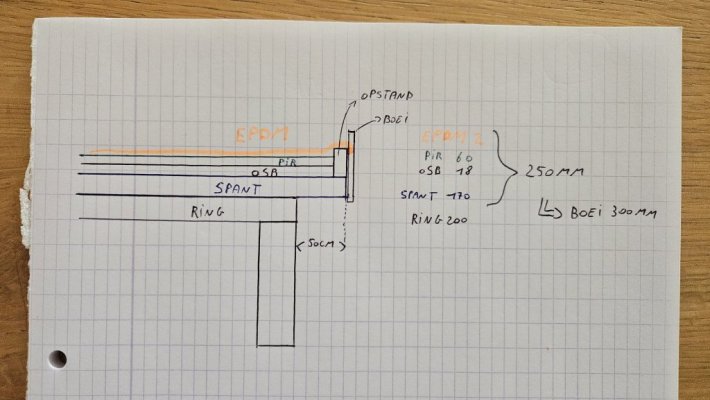 OPSTAND
BOEI
EPDM
PiR
OSB
SPANT
RING
50CM
EPDM 2
PiR 60
OSB 18
SPANT 170
RING 200
250MM
BOEI 300MM